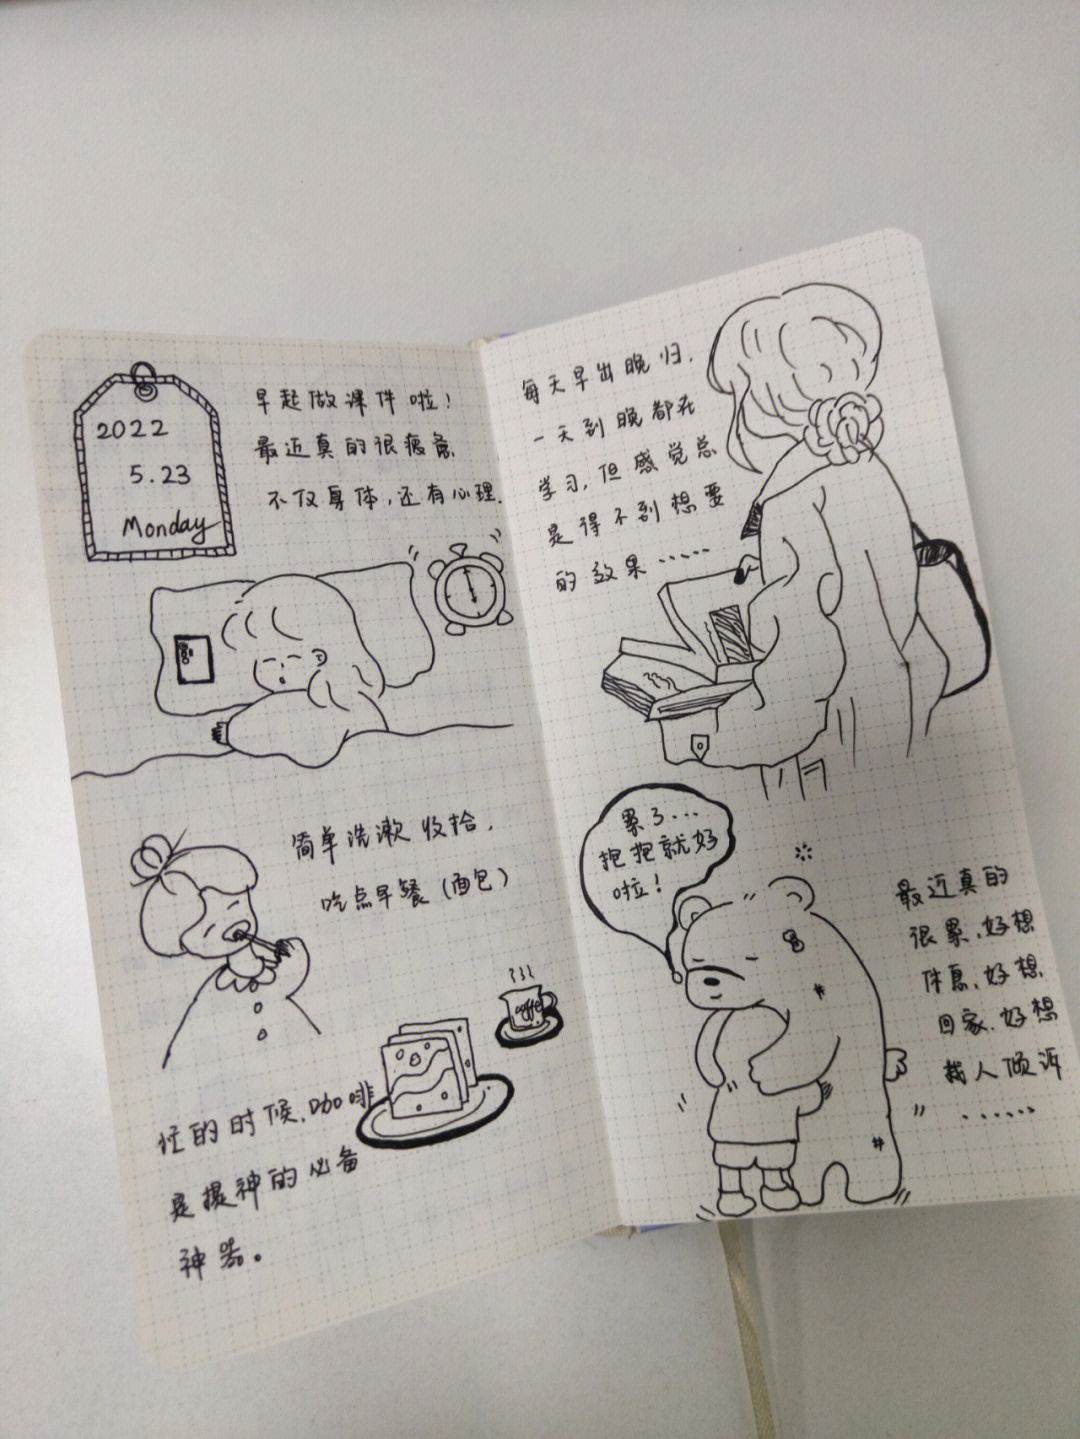 2022
5.23
Monday
早起做课件啦!
最近真的很疲惫,
不仅身体,还有心理.
简单洗漱收拾,
吃点早餐(面包)
coffee
忙的时候,咖啡
是提神的必备
神器。
每天早出晚归,
一天到晚都在
学习,但感觉总
是得不到想要
的效果······
累了...
抱抱就好
啦!
最近真的
很累,好想
休息,好想
回家,好想
找人倾诉
······